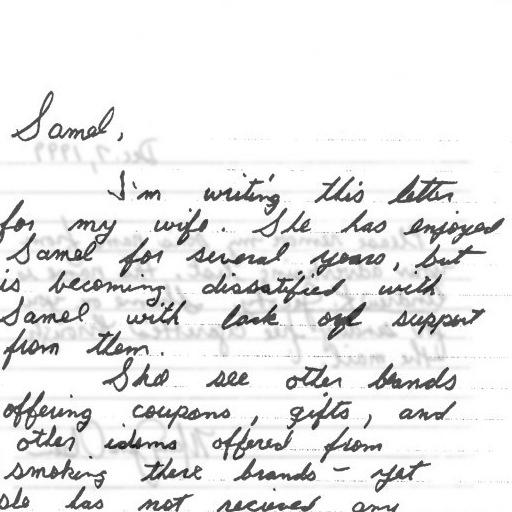 Samel,
Dec 7, 1999
I'm writing this letter
for my wife. She has enjoyed
Samel for several years, but
is becoming dissatified with
Samel with lack of support
from them.
She see other brands
offering coupons, gifts, and
other idems offered from
smoking there brands - yet
she has not recieved any